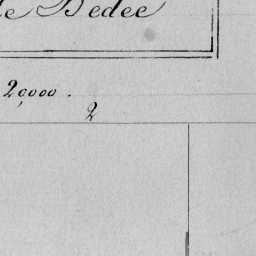 de Bedee
20000.
2